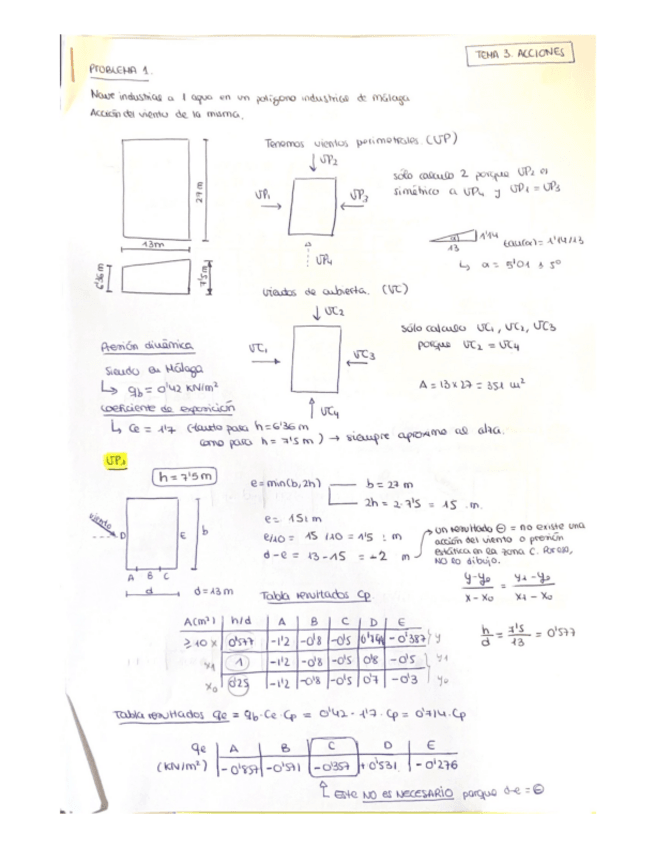 TEMA 3. ACCIONES
PROBLEMA 1.
Nave industrial a 1 agua en un polígono industrial de Málaga
Acción del viento de la misma.
Tenemos vientos perimetrales. (VP)
VP2
VP1
VP3
VP4
sólo calculo 2 porque VP2 es
simétrico a VP4 y VP1 = VP3
27 m
13m
6'36 m
7'5 m
1'14
13
tau(α) = 1'14/13
↳ α = 5'01 ± 5°
Vientos de cubierta. (VC)
VC2
VC1
VC3
VC4
sólo calculo VC1, VC2, VC3
porque VC2 = VC4
A = 13 x 27 = 351 m²
Presión dinámica
Siendo en Málaga
↳ qb = 0'42 KN/m²
Coeficiente de exposición
↳ Ce = 1'7 (tanto para h = 6'36 m
como para h = 7'5 m) → siempre aproximo al alza.
VP1
h = 7'5 m
viento
D
E
b
A B C
d
d = 13 m
e = min(b, 2h)
b = 27 m
2h = 2·7'5 = 15 m.
e = 15 m
e/10 = 15/10 = 1'5 m
d - e = 13 - 15 = -2 m
un resultado ⊖ = no existe una
acción del viento o presión
estática en la zona C. Por eso,
NO lo dibujo.
y-y0 / x-x0 = y1-y0 / x1-x0
h/d = 7'5/13 = 0'577
Tabla resultados Cp
A(m²) h/d A B C D E
≥10 x 0'577 -1'2 -0'8 -0'5 -0'387 y
x1 1 -1'2 -0'8 -0'5 0'8 -0'5 y1
x0 0'25 -1'2 -0'8 -0'5 0'7 -0'3 y0
Tabla resultados qe = qb·Ce·Cp = 0'42 · 1'7 · Cp = 0'714·Cp
qe A B C D E
(KN/m²) -0'857 -0'571 -0'357 +0'531 -0'276
Este NO es NECESARIO porque d-e = ⊖